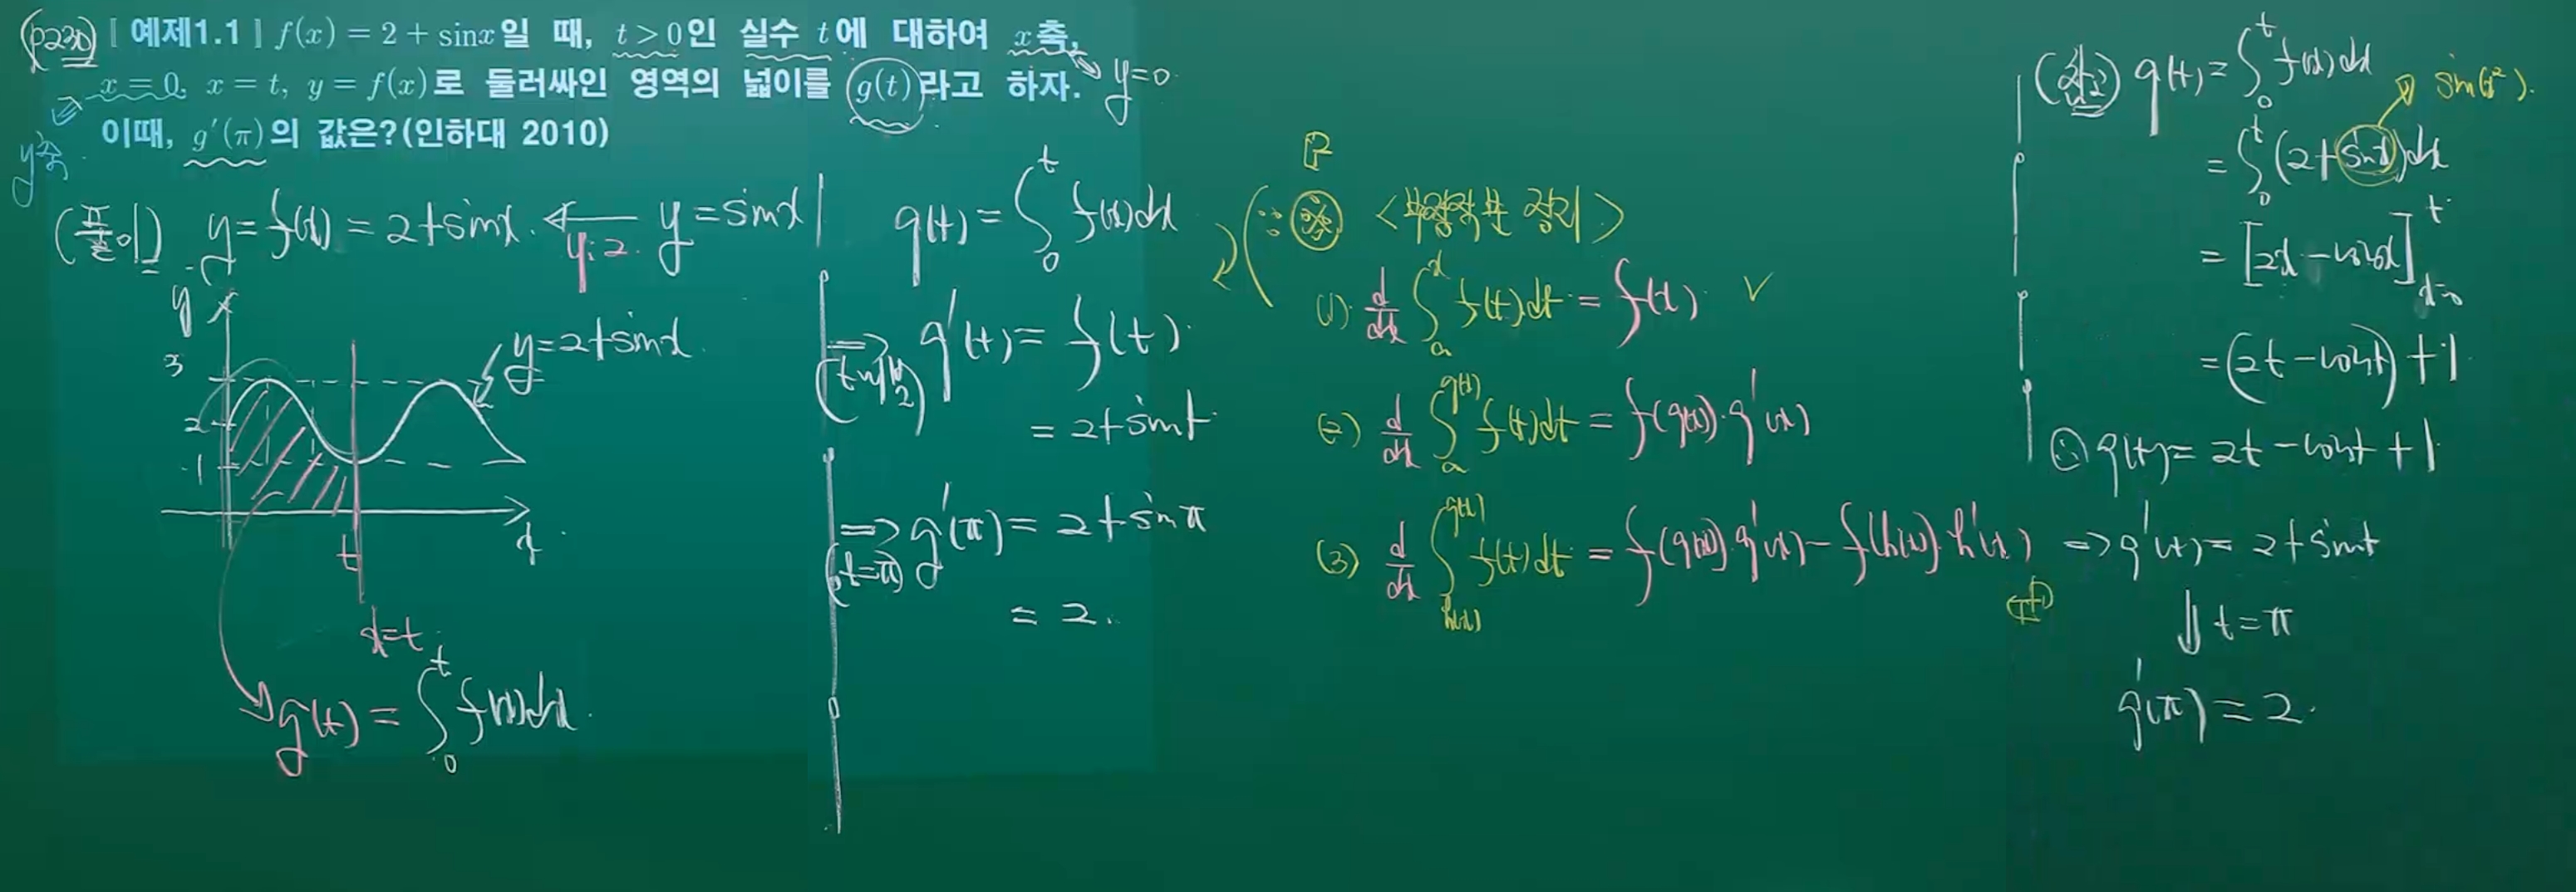 (p230) [예제1.1] f(x) = 2 + sinx일 때, t > 0인 실수 t에 대하여 x축,
x = 0, x = t, y = f(x)로 둘러싸인 영역의 넓이를 g(t)라고 하자.
이때, g′(π)의 값은?(인하대 2010)
y=0
y축
y = f(x) = 2+sinx. ← y = sinx
y: 2.
y
3
2
1
y=2+sinx.
t
x
x=t
g(t) = ∫₀ᵗ f(x)dx.
g(t) = ∫₀ᵗ f(x)dx
⇒ g′(t) = f(t).
= 2+sint.
⇒ g′(π) = 2+sinπ
(t=π)
= 2.
(1). d/dx ∫ₐˣ f(t)dt = f(x). ✓
(2) d/dx ∫ₐ^g(x) f(t)dt = f(g(x))·g′(x)
(3) d/dx ∫_h(x)^g(x) f(t)dt = f(g(x))·g′(x) − f(h(x))·h′(x)
g(t) = ∫₀ᵗ f(x)dx
sin(x²).
= ∫₀ᵗ (2+sinx)dx
= [2x − cosx]ᵗₓ₌₀
= (2t − cost) + 1
∴ g(t) = 2t − cost + 1
⇒ g′(t) = 2+sint
⇓ t = π
g′(π) = 2.